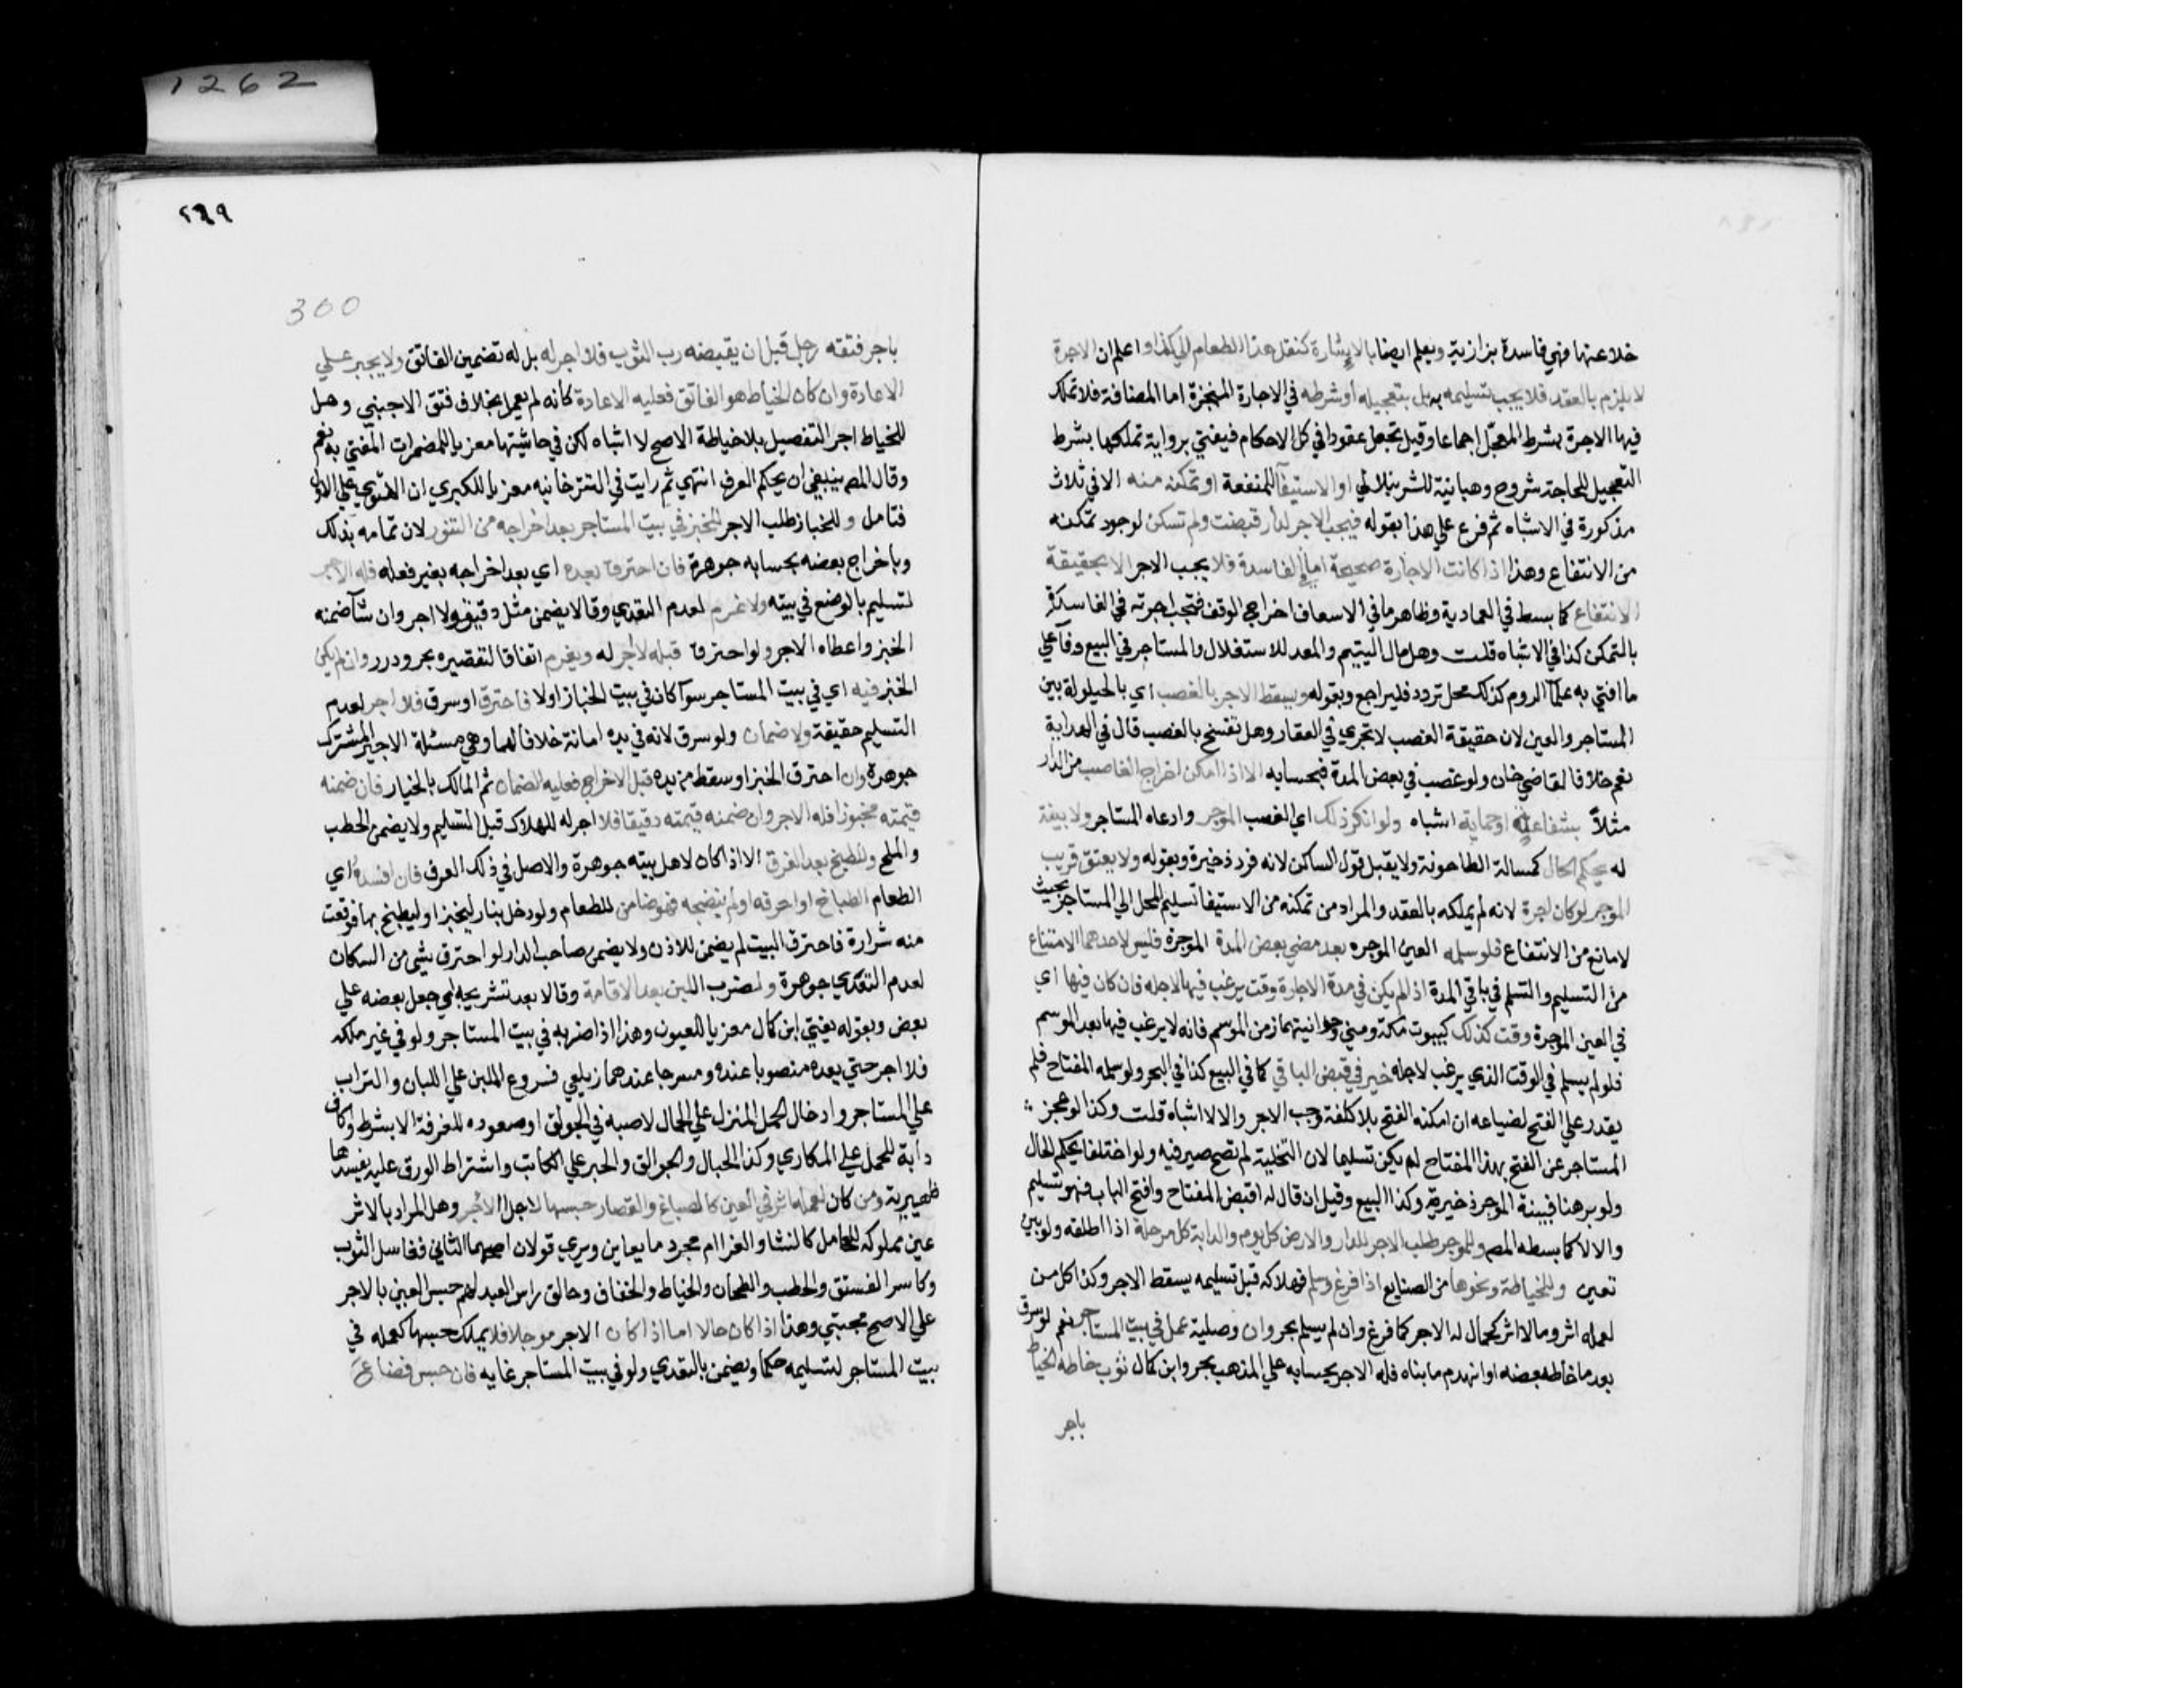 1262
خلا عنها فهي فاسدة بزازية ويعلم ايضا بالاشارة كنقل هذا الطعام الي كذا واعلم ان الاجرة
لا يلزم بالعقد فلا يجب تسليمه به بل بتعجيله او شرطه في الاجارة المنجزة اما المضافة فلا تملك
فيها الاجرة بشرط المعجل اجماعا وقيل تجعل عقودا في كل الاحكام فيفتي برواية تملكها بشرط
التعجيل للحاجة شروح وهبانية للشرنبلالي او الاستيفآ للمنفعة او تمكنه منه الا في ثلاث
مذكورة في الاشباه ثم فرع علي هذا بقوله فيجب الاجر لدار قبضت ولم تسكن لوجود تمكنه
من الانتفاع وهذا اذا كانت الاجارة صحيحة اما في الفاسدة فلا يجب الاجر الا بحقيقة
الانتفاع كما بسط في العمادية وظاهر ما في الاسعاف اخراج الوقف فتجب اجرته في الفاسدة
بالتمكن كذا في الاشباه قلت وهل مال اليتيم والمعد للاستغلال والمستاجر في البيع وفآ علي
ما افتي به علمآ الروم كذلك محل تردد فليراجع وبقوله ويسقط الاجر بالغصب اي بالحيلولة بين
المستاجر والعين لان حقيقة الغصب لا تجري في العقار وهل تفسخ بالغصب قال في الهداية
نعم خلافا لقاضي خان ولو غصب في بعض المدة فبحسابه الا اذا امكن اخراج الغاصب من الدار
مثلاً بشفاعة او حماية اشباه ولو انكر ذلك اي الغصب الموجر وادعاه المستاجر ولا بينة
له يحكم الحال كمسالة الطاحونة ولا يقبل قول الساكن لانه فرد ذخيرة وبقوله ولا يعتق قريب
الموجر لو كان اجرة لانه لم يملكه بالعقد والمراد من تمكنه من الاستيفا تسليم المحل الي المستاجر بحيث
لا مانع من الانتفاع فلو سلمه العين الموجره بعد مضي بعض المدة الموجرة فليس لاحدهما الامتناع
من التسليم والتسلم في باقي المدة اذا لم يكن في مدة الاجارة وقت يرغب فيها لاجله فان كان فيها اي
في العين الموجرة وقت كذلك كبيوت مكة ومني وحوانيتهما زمن الموسم فانه لا يرغب فيها بعد الموسم
فلو لم يسلم في الوقت الذي يرغب لاجله خير في قبض الباقي كما في البيع كذا في البحر ولو سلمه المفتاح فلم
يقدر علي الفتح لضياعه ان امكنه الفتح بلا كلفة وجب الاجر والا لا اشباه قلت وكذا لو عجز
المستاجر عن الفتح بهذا المفتاح لم يكن تسليما لان التخلية لم تصح صيرفيه ولو اختلفا يحكم الحال
ولو برهنا فبينة الموجر ذخيرة وكذا البيع وقيل ان قال له اقبض المفتاح وافتح الباب فهو تسليم
والا لا كما بسطه المصـ وللموجر طلب الاجر للدار والارض كل يوم والدابة كل مرحلة اذا اطلقه ولو بين
تعين وللخياطة ونحوها من الصنايع اذا فرغ وسلم فهلاكه قبل تسليمه يسقط الاجر وكذا كل من
لعمله اثر وما لا اثر كحمال له الاجر كما فرغ وان لم يسلم بحر وان وصلية عمل في بيت المستاجر نعم لو سرق
بعد ما خاط بعضه او انهدم ما بناه فله الاجر بحسابه علي المذهب بحر وابن كمال ثوب خاطه الخياط
باجر
٢٩٩
300
باجر ففتقه رجل قبل ان يقبضه رب الثوب فلا اجر له بل له تضمين الفاتق ولا يجبر علي
الاعادة وان كان الخياط هو الفاتق فعليه الاعادة كانه لم يعمل بخلاف فتق الاجنبي وهل
للخياط اجر التفصيل بلا خياطة الاصح لا اشباه لكن في حاشيتها معزيا للمضمرات المفتي به نعم
وقال المصـ ينبغي ان يحكم العرف انتهي ثم رايت في التترخانيه معزيا للكبري ان الفتوي علي الاول
فتامل وللخباز طلب الاجر للخبز في بيت المستاجر بعد اخراجه من التنور لان تمامه بذلك
وباخراج بعضه بحسابه جوهرة فان احترق بعده اي بعد اخراجه بغير فعله فله الاجر
لتسليم بالوضع في بيته ولا غرم لعدم التعدي وقالا يضمن مثل دقيقه ولا اجر وان شآ ضمنه
الخبز واعطاه الاجر ولو احترق قبله لا اجر له ويغرم اتفاقا لتقصيره بحر ودرر وان لم يكن
الخبز فيه اي في بيت المستاجر سوآ كان في بيت الخباز اولا فاحترق او سرق فلا اجر لعدم
التسليم حقيقة ولا ضمان ولو سرق لانه في يده امانة خلافا لهما وهي مسئلة الاجير المشترك
جوهرة وان احترق الخبز او سقط من يده قبل الاخراج فعليه الضمان ثم المالك بالخيار فان ضمنه
قيمته مخبوزا فله الاجر وان ضمنه قيمته دقيقا فلا اجر له للهلاك قبل التسليم ولا يضمن الحطب
والملح وللطبخ بعد الغرق الا اذا كان لاهل بيته جوهرة والاصل في ذلك العرف فان افسده اي
الطعام الطباخ او احرقه او لم ينضجه فهو ضامن للطعام ولو دخل بنار ليخبز او ليطبخ بها فوقعت
منه شرارة فاحترق البيت لم يضمن للاذن ولا يضمن صاحب الدار لو احترق شي من السكان
لعدم التعدي جوهرة ولضرب اللبن بعد الاقامة وقالا بعد تشريجه اي جعل بعضه علي
بعض وبقوله يفتي ابن كمال معزيا للعيون وهذا اذا ضربه في بيت المستاجر ولو في غير ملكه
فلا اجر حتي يعده منصوبا عنده ومسرجا عندهما زيلعي فسروع الملبن علي اللبان والتراب
علي المستاجر وادخال الحمل المنزل علي الحمال لا صبه في الجوالق او صعوده للغرفة الا بشرط وكاف
دابة للحمل علي المكاري وكذا الحبال والجوالق والحبر علي الكاتب واشتراط الورق عليه يفسدها
ظهيرية ومن كان لعمله اثر في العين كالصباغ والقصار حبسها لاجل الاجر وهل المراد بالاثر
عين مملوكة للعامل كالنشا والغرا ام مجرد ما يعاين ويري قولان اصحهما الثاني فغاسل الثوب
وكاسر الفستق والحطب والطحان والخياط والخفاف وحالق راس العبد لهم حبس العين بالاجر
علي الاصح مجتبي وهذا اذا كان حالا اما اذا كان الاجر موجلا فلا يملك حبسها كعمله في
بيت المستاجر لتسليمه حكما ويضمن بالتعدي ولو في بيت المستاجر غايه فان حبس فضاع